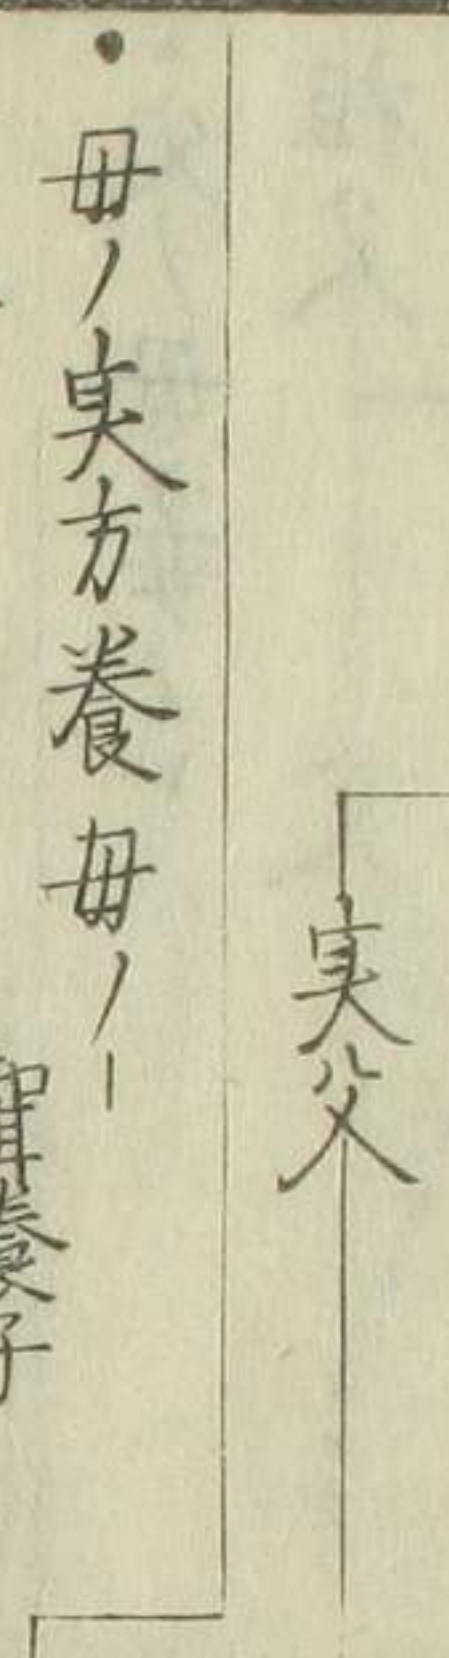 実父
●母ノ実方養母ノ一
聟養子